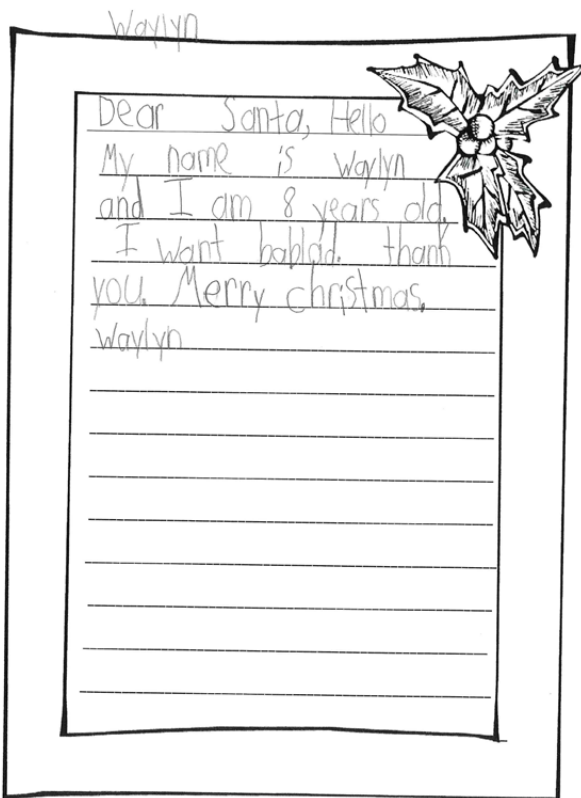 Waylyn
Dear Santa, Hello
My name is Waylyn
and I am 8 years old.
I want bablad. thank
you. Merry christmas.
Waylyn